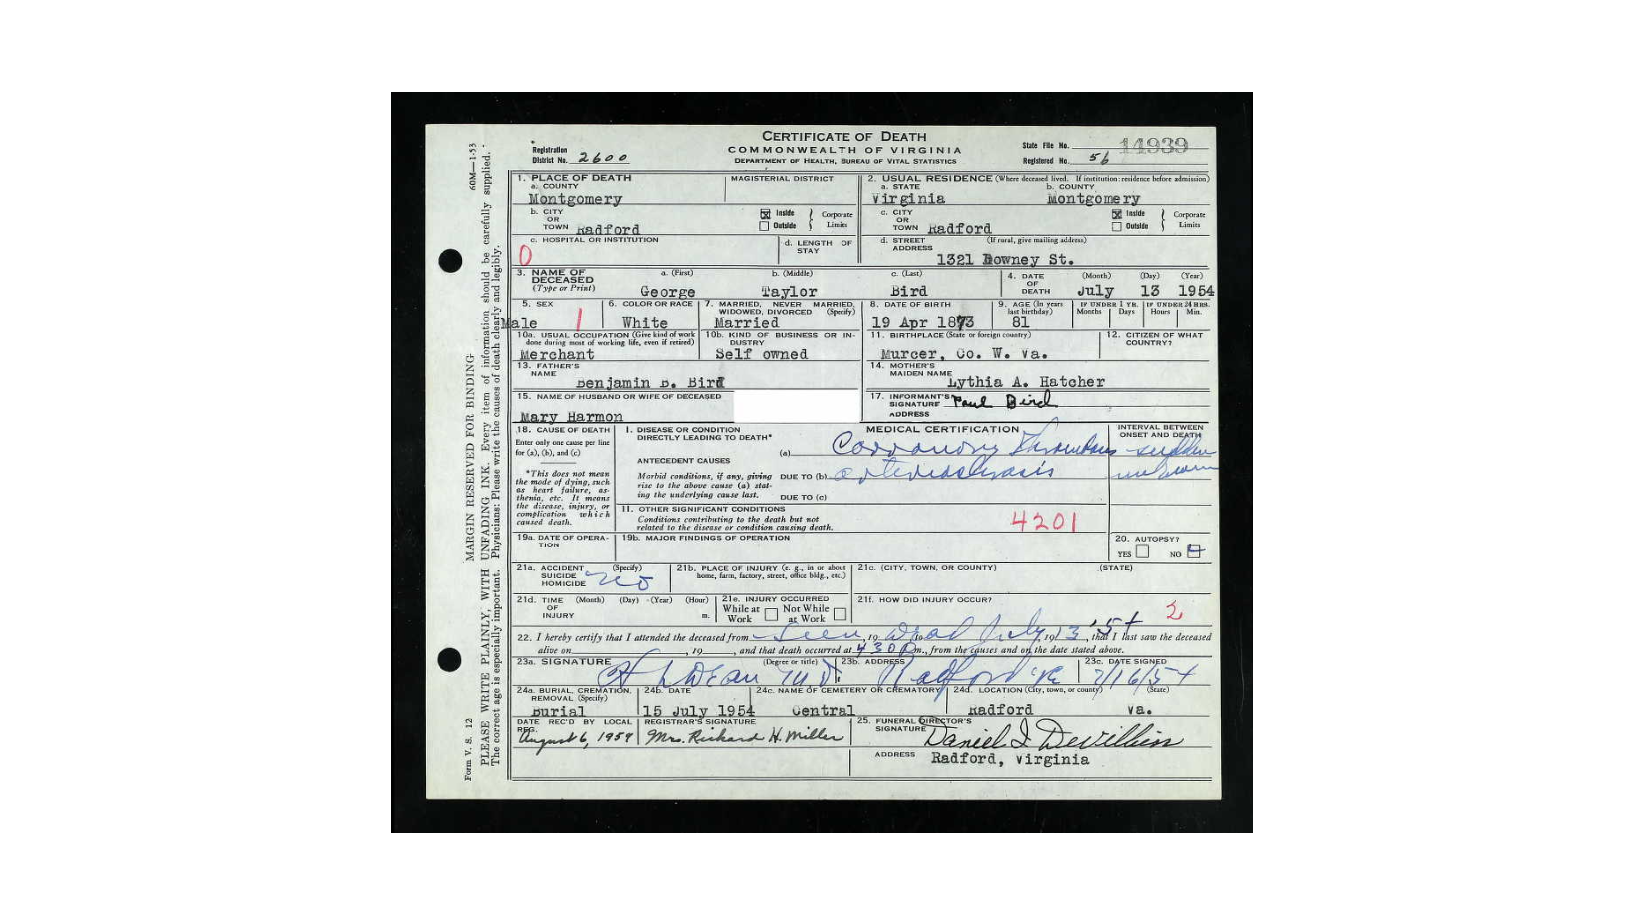 CERTIFICATE OF DEATH
COMMONWEALTH OF VIRGINIA
DEPARTMENT OF HEALTH, BUREAU OF VITAL STATISTICS
Registration District No. 2600
State File No. 14939
Registered No. 56
60M—1-53
MARGIN RESERVED FOR BINDING
PLEASE WRITE PLAINLY, WITH UNFADING INK. Every item of information should be carefully supplied.
The correct age is especially important. Physicians: Please write the causes of death clearly and legibly.
Form V. S. 12
1. PLACE OF DEATH
a. COUNTY
Montgomery
MAGISTERIAL DISTRICT
b. CITY OR TOWN Radford
Inside
Outside
Corporate Limits
c. HOSPITAL OR INSTITUTION
0
d. LENGTH OF STAY
2. USUAL RESIDENCE (Where deceased lived. If institution: residence before admission)
a. STATE
Virginia
b. COUNTY
Montgomery
c. CITY OR TOWN Radford
Inside
Outside
Corporate Limits
d. STREET ADDRESS (If rural, give mailing address)
1321 Downey St.
3. NAME OF DECEASED
(Type or Print)
a. (First) b. (Middle) c. (Last)
George Taylor Bird
4. DATE OF DEATH
(Month) (Day) (Year)
July 13 1954
5. SEX
Male 1
6. COLOR OR RACE
White
7. MARRIED, NEVER MARRIED, WIDOWED, DIVORCED (Specify)
Married
8. DATE OF BIRTH
19 Apr 1873
9. AGE (In years last birthday)
81
IF UNDER 1 YR. IF UNDER 24 HRS.
Months Days Hours Min.
10a. USUAL OCCUPATION (Give kind of work done during most of working life, even if retired)
Merchant
10b. KIND OF BUSINESS OR INDUSTRY
Self owned
11. BIRTHPLACE (State or foreign country)
Murcer, Co. W. Va.
12. CITIZEN OF WHAT COUNTRY?
13. FATHER'S NAME
Benjamin B. Bird
14. MOTHER'S MAIDEN NAME
Lythia A. Hatcher
15. NAME OF HUSBAND OR WIFE OF DECEASED
Mary Harmon
17. INFORMANT'S SIGNATURE Paul Bird
ADDRESS
18. CAUSE OF DEATH
Enter only one cause per line for (a), (b), and (c)
*This does not mean the mode of dying, such as heart failure, asthenia, etc. It means the disease, injury, or complication which caused death.
MEDICAL CERTIFICATION
INTERVAL BETWEEN ONSET AND DEATH
I. DISEASE OR CONDITION DIRECTLY LEADING TO DEATH*
(a) Corronory Thrombous sudden
ANTECEDENT CAUSES
Morbid conditions, if any, giving rise to the above cause (a) stating the underlying cause last.
DUE TO (b) arteriosclerosis unknown
DUE TO (c)
II. OTHER SIGNIFICANT CONDITIONS
Conditions contributing to the death but not related to the disease or condition causing death.
4201
19a. DATE OF OPERATION
19b. MAJOR FINDINGS OF OPERATION
20. AUTOPSY?
YES NO
21a. ACCIDENT SUICIDE HOMICIDE (Specify)
no
21b. PLACE OF INJURY (e. g., in or about home, farm, factory, street, office bldg., etc.)
21c. (CITY, TOWN, OR COUNTY) (STATE)
21d. TIME OF INJURY (Month) (Day) (Year) (Hour) m.
21e. INJURY OCCURRED
While at Work Not While at Work
21f. HOW DID INJURY OCCUR?
2
22. I hereby certify that I attended the deceased from Seen, 19 to dead July, 19 13 '54, that I last saw the deceased
alive on , 19 , and that death occurred at 4 30 P m., from the causes and on the date stated above.
23a. SIGNATURE (Degree or title)
H L Dean M.D.
23b. ADDRESS
Radford Va
23c. DATE SIGNED
7/16/54
24a. BURIAL, CREMATION, REMOVAL (Specify)
Burial
24b. DATE
15 July 1954
24c. NAME OF CEMETERY OR CREMATORY
Central
24d. LOCATION (City, town, or county) (State)
Radford Va.
DATE REC'D BY LOCAL REG.
August 6, 1954
REGISTRAR'S SIGNATURE
Mrs. Richard H. Miller
25. FUNERAL DIRECTOR'S SIGNATURE
Daniel I Devilbiss
ADDRESS Radford, Virginia